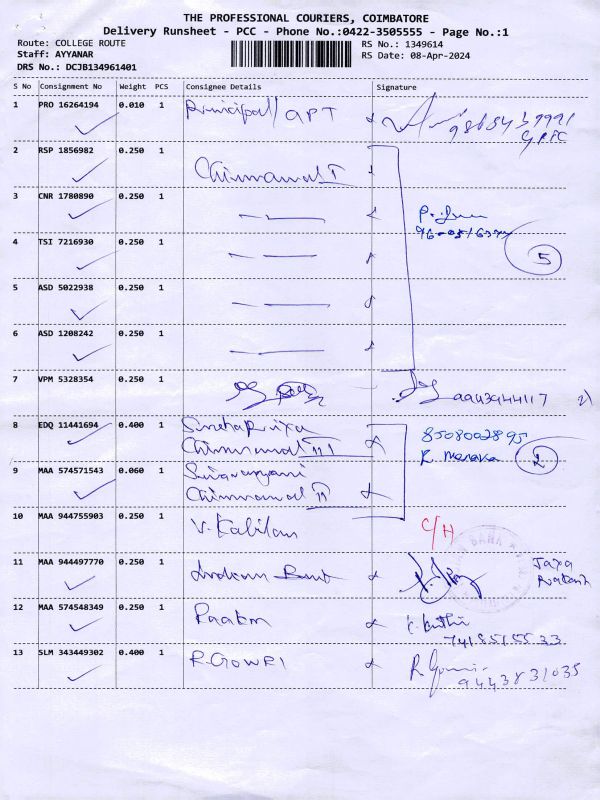 THE PROFESSIONAL COURIERS, COIMBATORE
Delivery Runsheet - PCC - Phone No.:0422-3505555 - Page No.:1
Route: COLLEGE ROUTE
Staff: AYYANAR
DRS No.: DCJB134961401
RS No.: 1349614
RS Date: 08-Apr-2024
S No Consignment No Weight PCS Consignee Details Signature
1 PRO 16264194 0.010 1 Principal/ GPT
2 RSP 1856982 0.250 1
3 CNR 1780890 0.250 1
4 TSI 7216930 0.250 1
5
5 ASD 5022938 0.250 1
6 ASD 1208242 0.250 1
7 VPM 5328354 0.250 1
2)
8 EDQ 11441694 0.400 1 Snehapriya
8508002895
R Menaka
2
9 MAA 574571543 0.060 1
10 MAA 944755903 0.250 1 V. Kabilan C/H
11 MAA 944497770 0.250 1 Indian Bank
12 MAA 574548349 0.250 1
7418515533
13 SLM 343449302 0.400 1 R.GOWRI R Gowri
9443831035